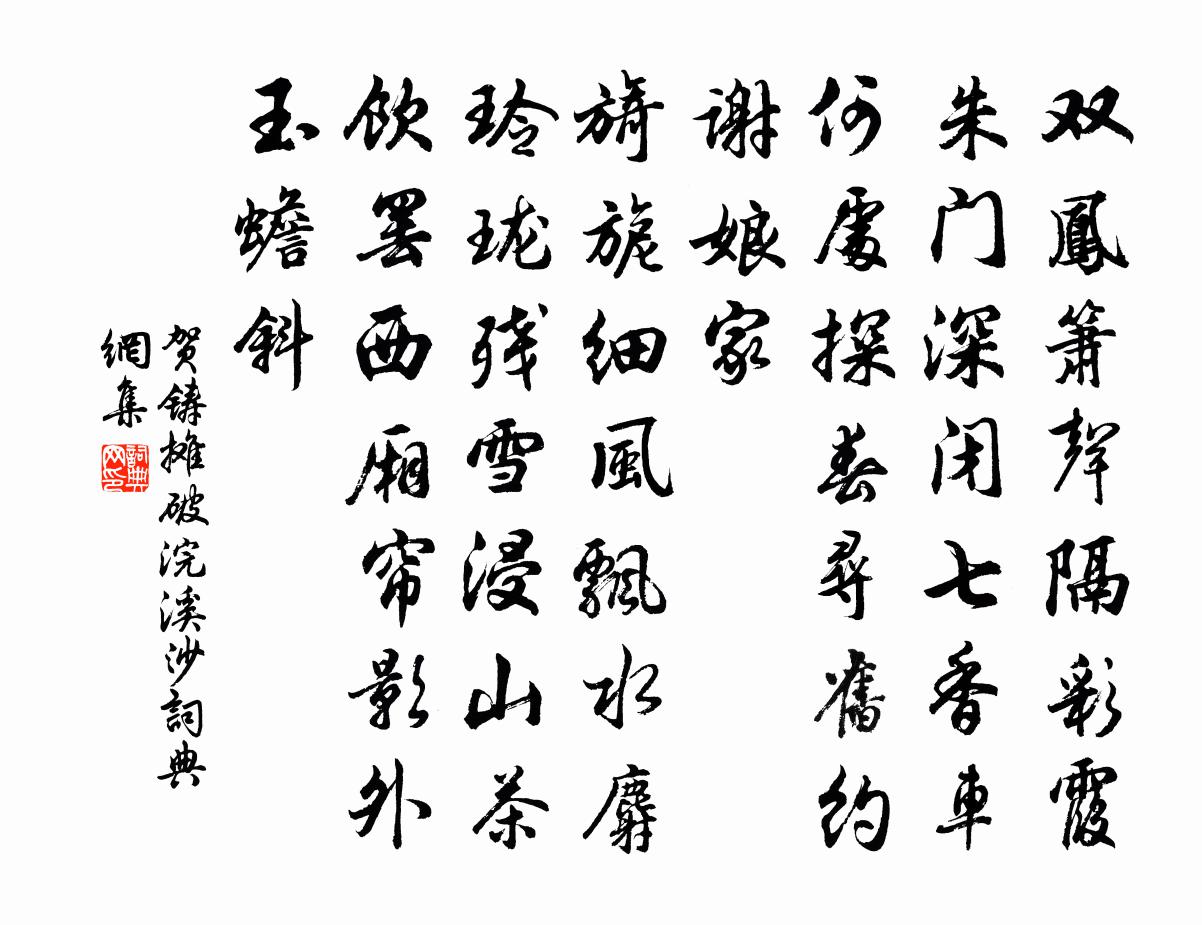 双鳳簫聲隔彩霞
朱门深闭七香車
何處探春尋舊約
謝娘家
旖旎细風飄水麝
玲珑残雪浸山茶
饮罢西厢帘影外
玉蟾斜
贺鑄摊破浣溪沙詞典
網集
詞典
网印